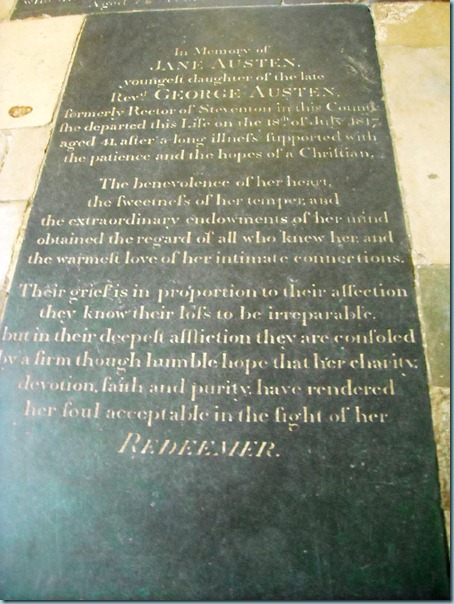 Aged
In Memory of
JANE AUSTEN,
youngeſt daughter of the late
Revd. GEORGE AUSTEN,
formerly Rector of Steventon in this County
ſhe departed this Life on the 18th. of July 1817,
aged 41, after a long illneſs ſupported with
the patience and the hopes of a Chriſtian.
The benevolence of her heart,
the ſweetneſs of her temper, and
the extraordinary endowments of her mind
obtained the regard of all who knew her, and
the warmeſt love of her intimate connections.
Their grief is in proportion to their affection
they know their loſs to be irreparable,
but in their deepeſt affliction they are conſoled
by a firm though humble hope that her charity,
devotion, faith and purity, have rendered
her ſoul acceptable in the ſight of her
REDEEMER.